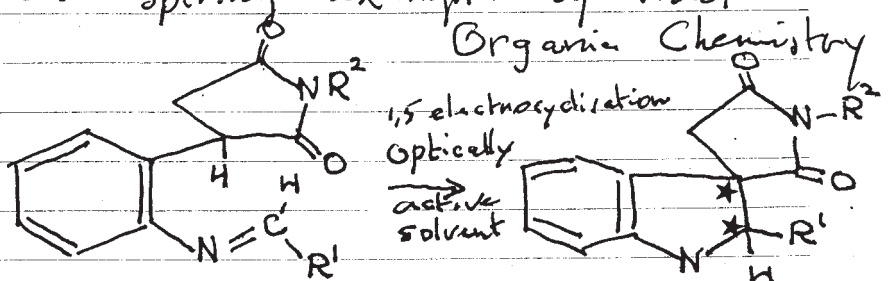 Organic Chemistry
O
N R²
1,5 electrocyclisation
Optically
active
solvent
O
H
H
N = C
R¹
O
N-R²
O
★
★ R¹
N
H